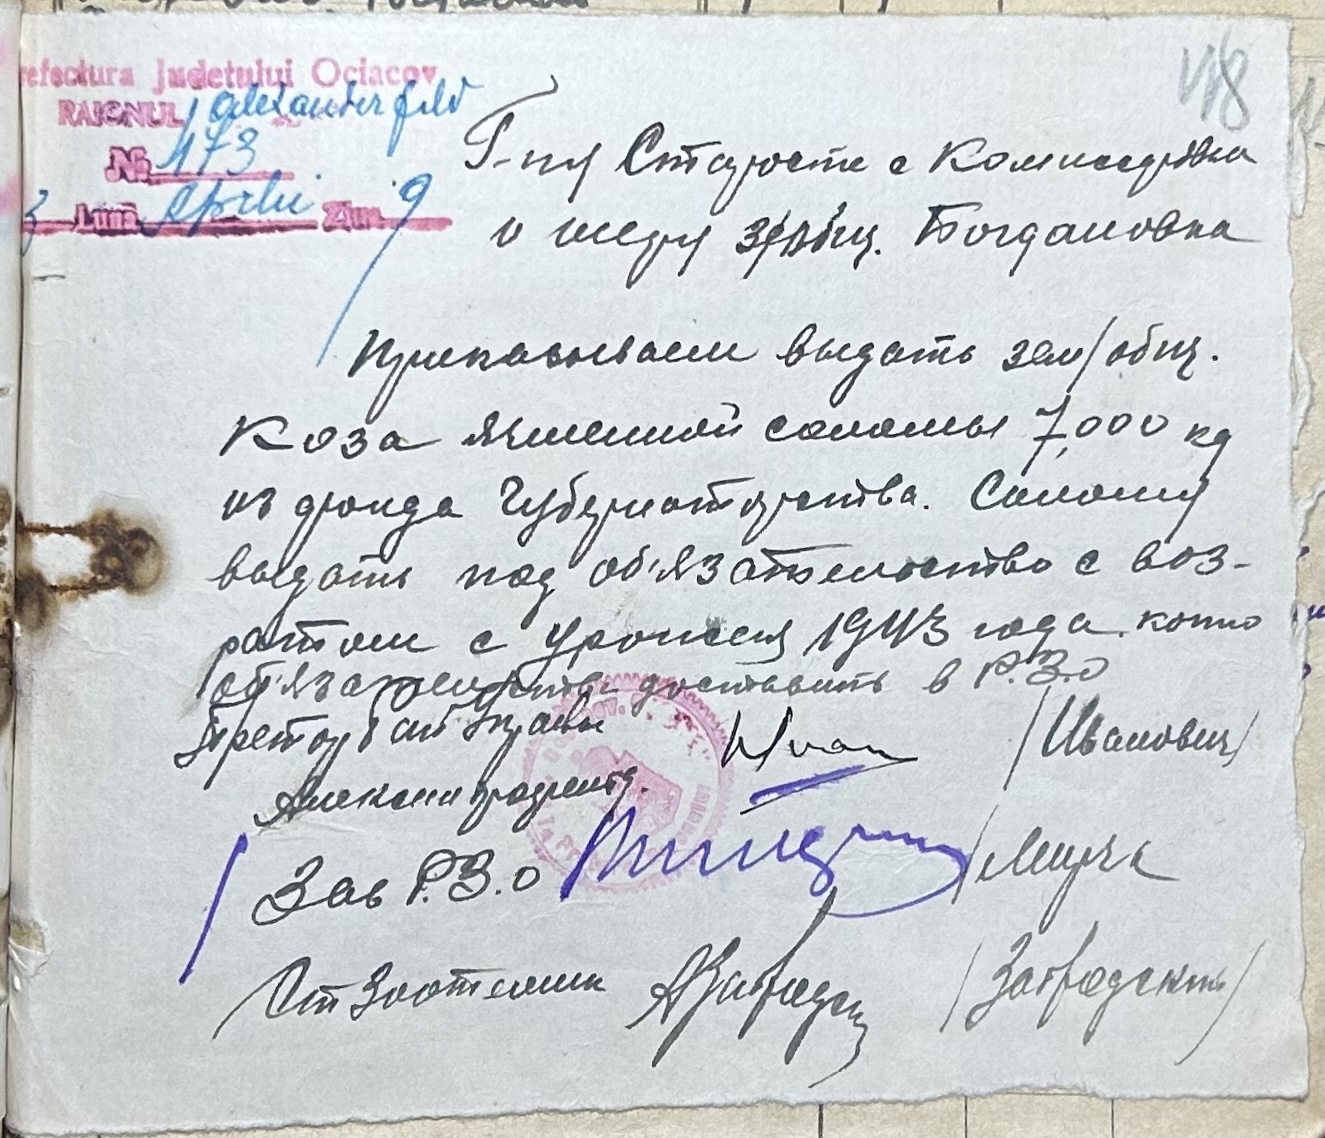 refectura Judetului Ociacov
RAIONUL Alexanderfeld
№ 173
Luna Aprilie Ziua 9
Г-ну Старосте с Комиссаровка
и шефу з/общ. Богдановка
Приказываем выдать зем/общ.
Коза ячменной соломы 7,000 кg
из фонда Губернаторства. Солому
выдать под об'язательство с воз-
ратом с урожая 1943 года. копию
об'язательства доставить в Р.З.о
Претор Управы /Иванович/
Александрфельд.
Зав Р.З.о /Мирча
Ст Зоотехник АЗавадск /Завадский/